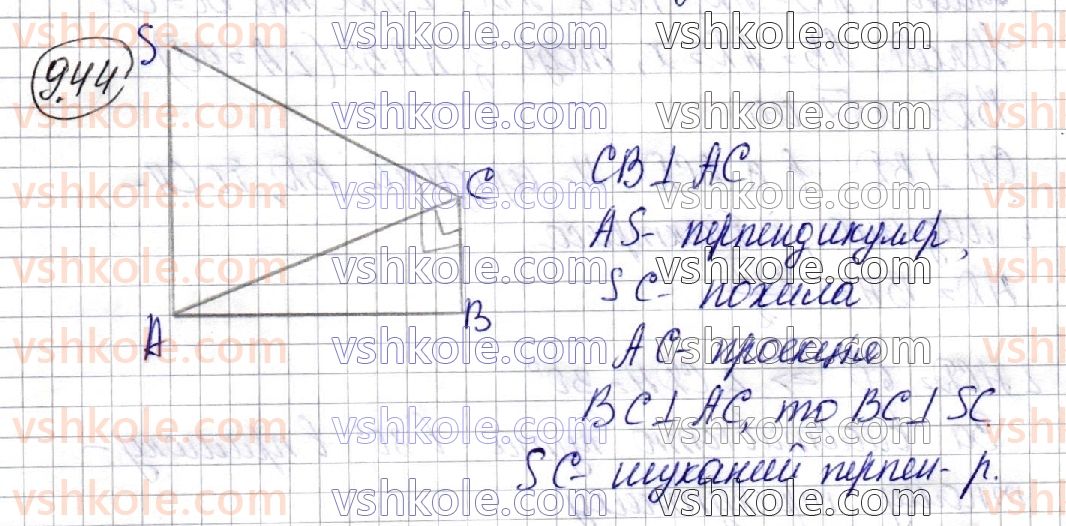 9.44
S
C
A
B
CB⊥AC
AS- перпендикуляр,
SC- похила
AC- проекція
BC⊥AC, то BC⊥SC
SC- шуканий перпен- р.
vshkole.com